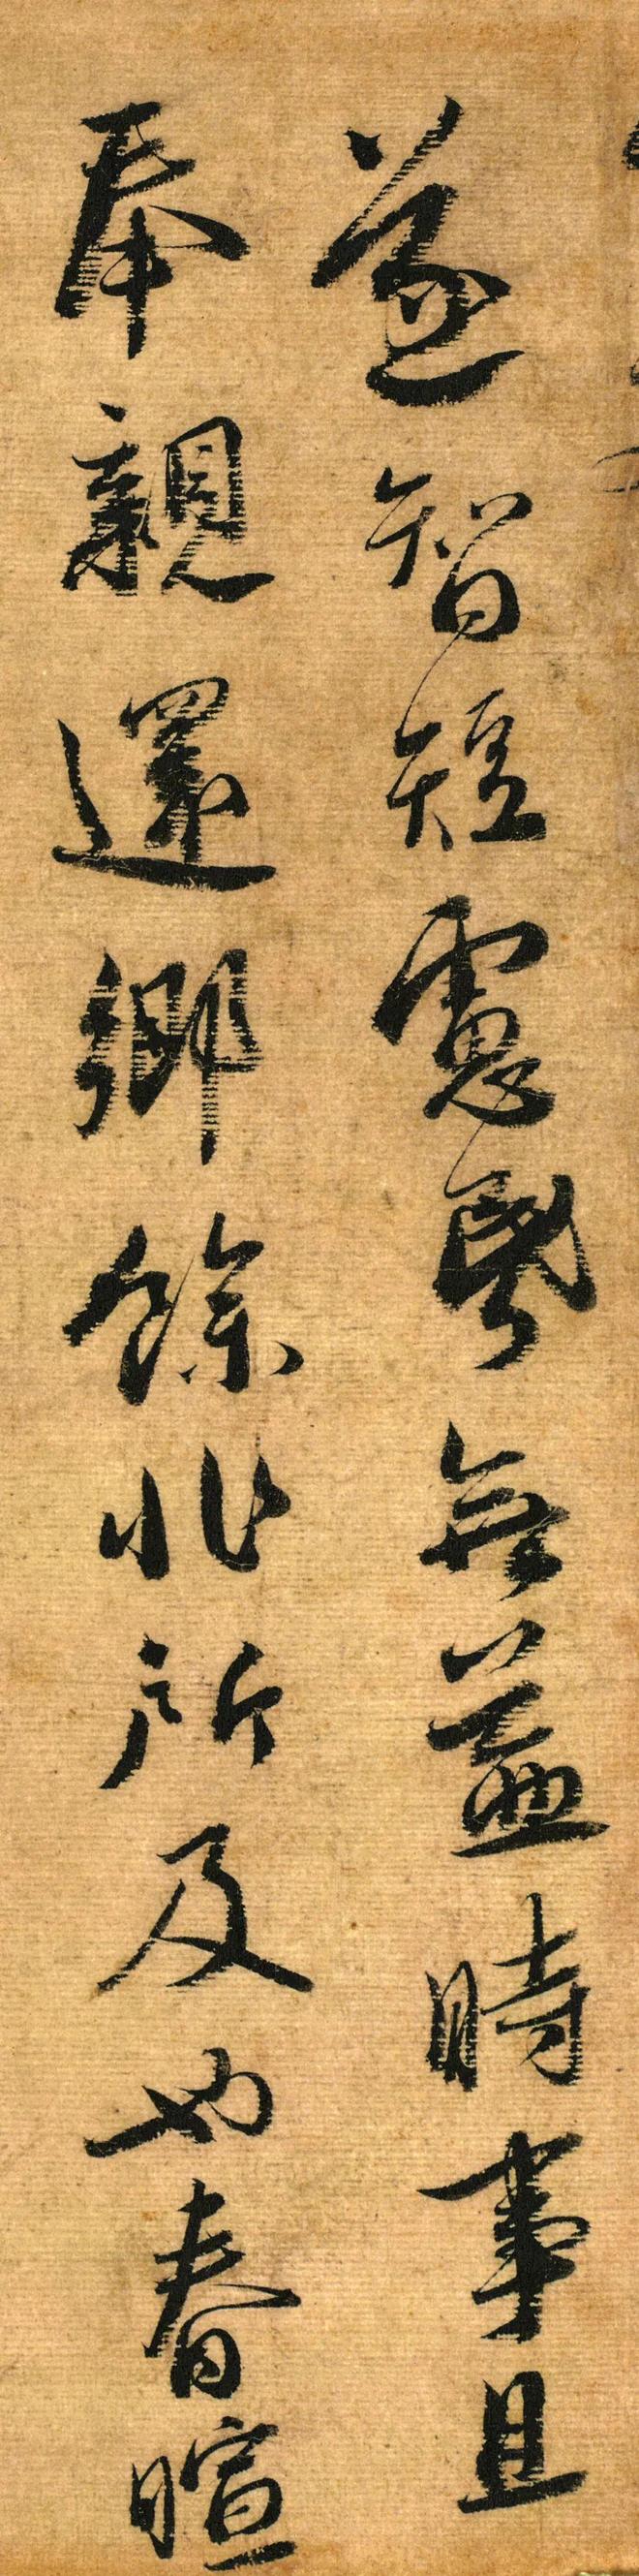 并智短慮昬無益時事且
奉親還鄉餘非所及也春暄